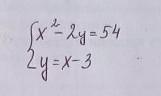 {x² - 2y = 54
2y = x - 3